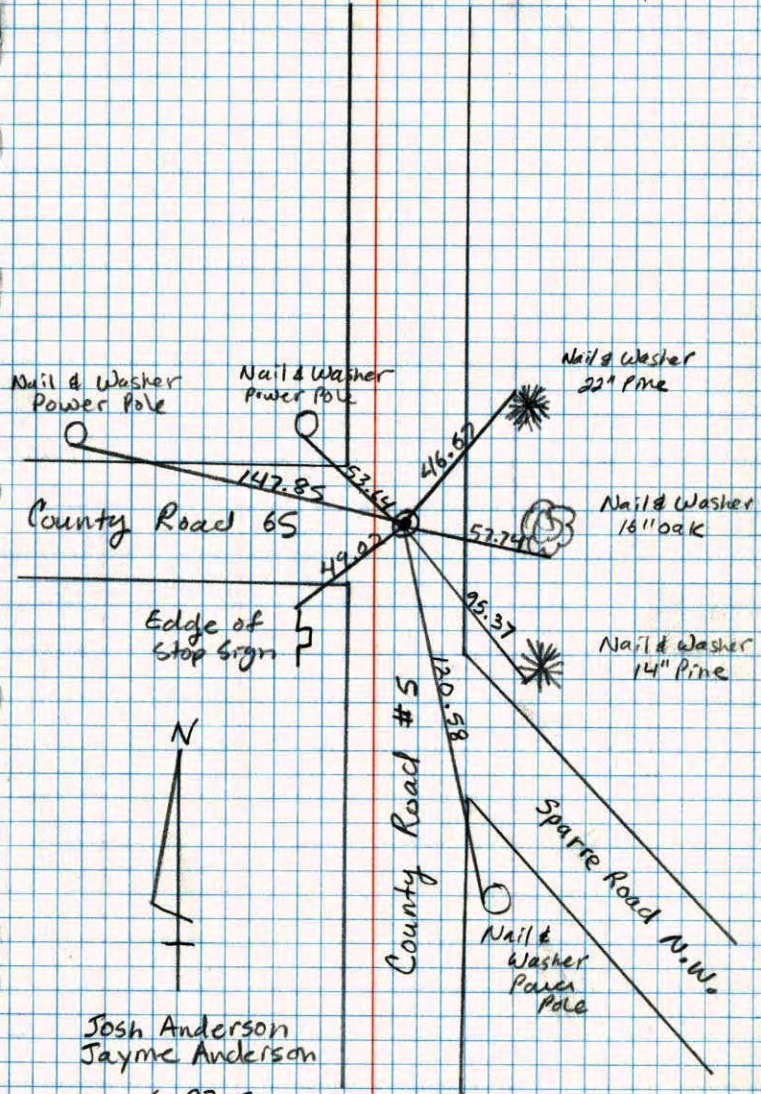 Nail & Washer
22" Pine
Nail & Washer
Power Pole
Nail & Washer
Power Pole
46.67
147.85
53.64
County Road 65
Nail & Washer
16" Oak
57.74
49.07
Edge of
Stop Sign
95.37
Nail & Washer
14" Pine
120.58
County Road #5
N
Sparre Road N.W.
Nail &
Washer
Power
Pole
Josh Anderson
Jayme Anderson